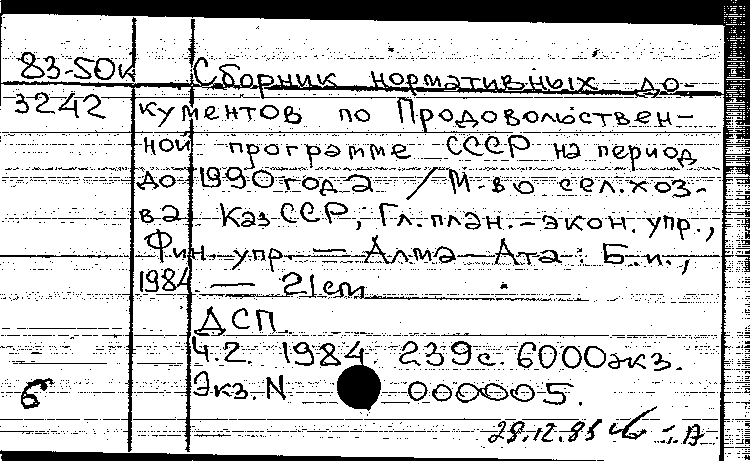 83-50к Сборник нормативных до-
3242 кументов по Продовольствен-
ной программе СССР на период
до 1990 года / М-во сел. хоз-
ва Каз ССР, Гл. план.-экон. упр.,
Фин. упр. — Алма-Ата : Б.и.,
1984. — 21 cm
ДСП.
Ч.2. 1984. 239с. 6000экз.
Экз. N 000005.
6
28.12.83